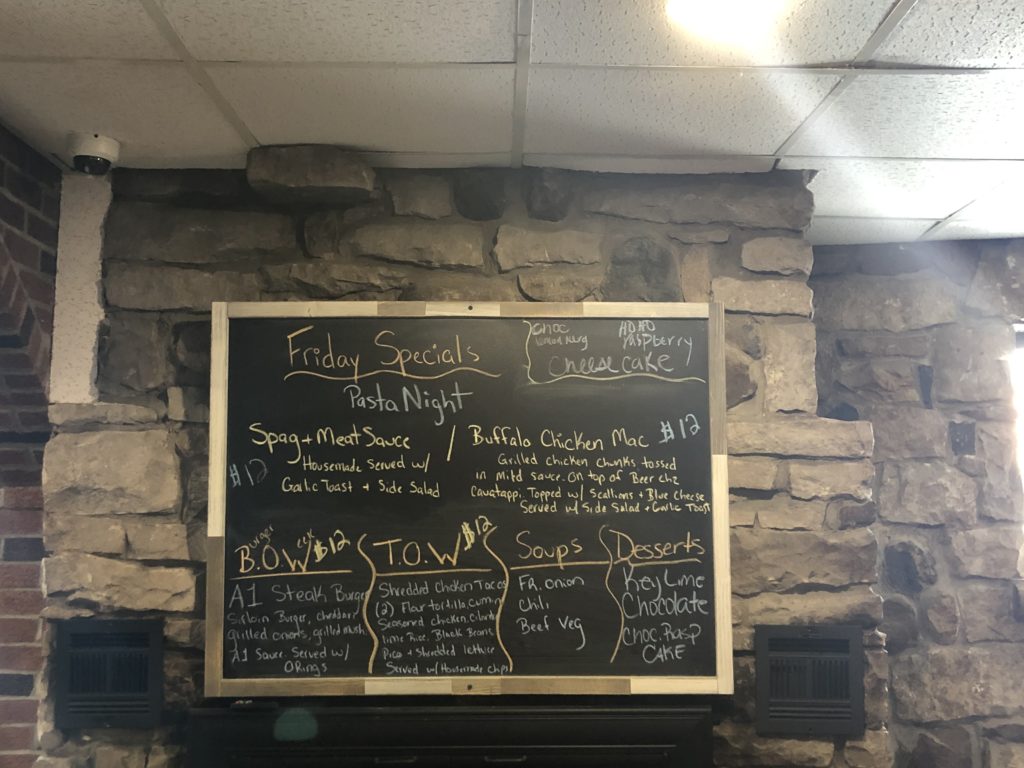 Friday Specials
Choc
ADAD
raspberry
Cheesecake
Pasta Night
Spag + Meat Sauce
$12
Housemade Served w/
Garlic Toast + Side Salad
/
Buffalo Chicken Mac $12
Grilled chicken chunks tossed
in mild sauce. On top of Beer chz
Cavatappi Topped w/ Scallions + Blue Cheese
Served w/ Side Salad + Garlic Toast
Burger eek
B.O.W $12
A1 Steak Burger
Sirloin Burger, cheddar
grilled onions, grilled mush
A1 Sauce. Served w/
ORings
T.O.W $12
Shredded Chicken Tacos
(2) Flour tortilla, cumin
Seasoned chicken, cilantro
lime Rice, Black Beans
Pico + shredded lettuce
Served w/ Housemade chips
Soups
FR. Onion
Chili
Beef Veg
Desserts
Key Lime
Chocolate
Choc. Rasp
CAKE